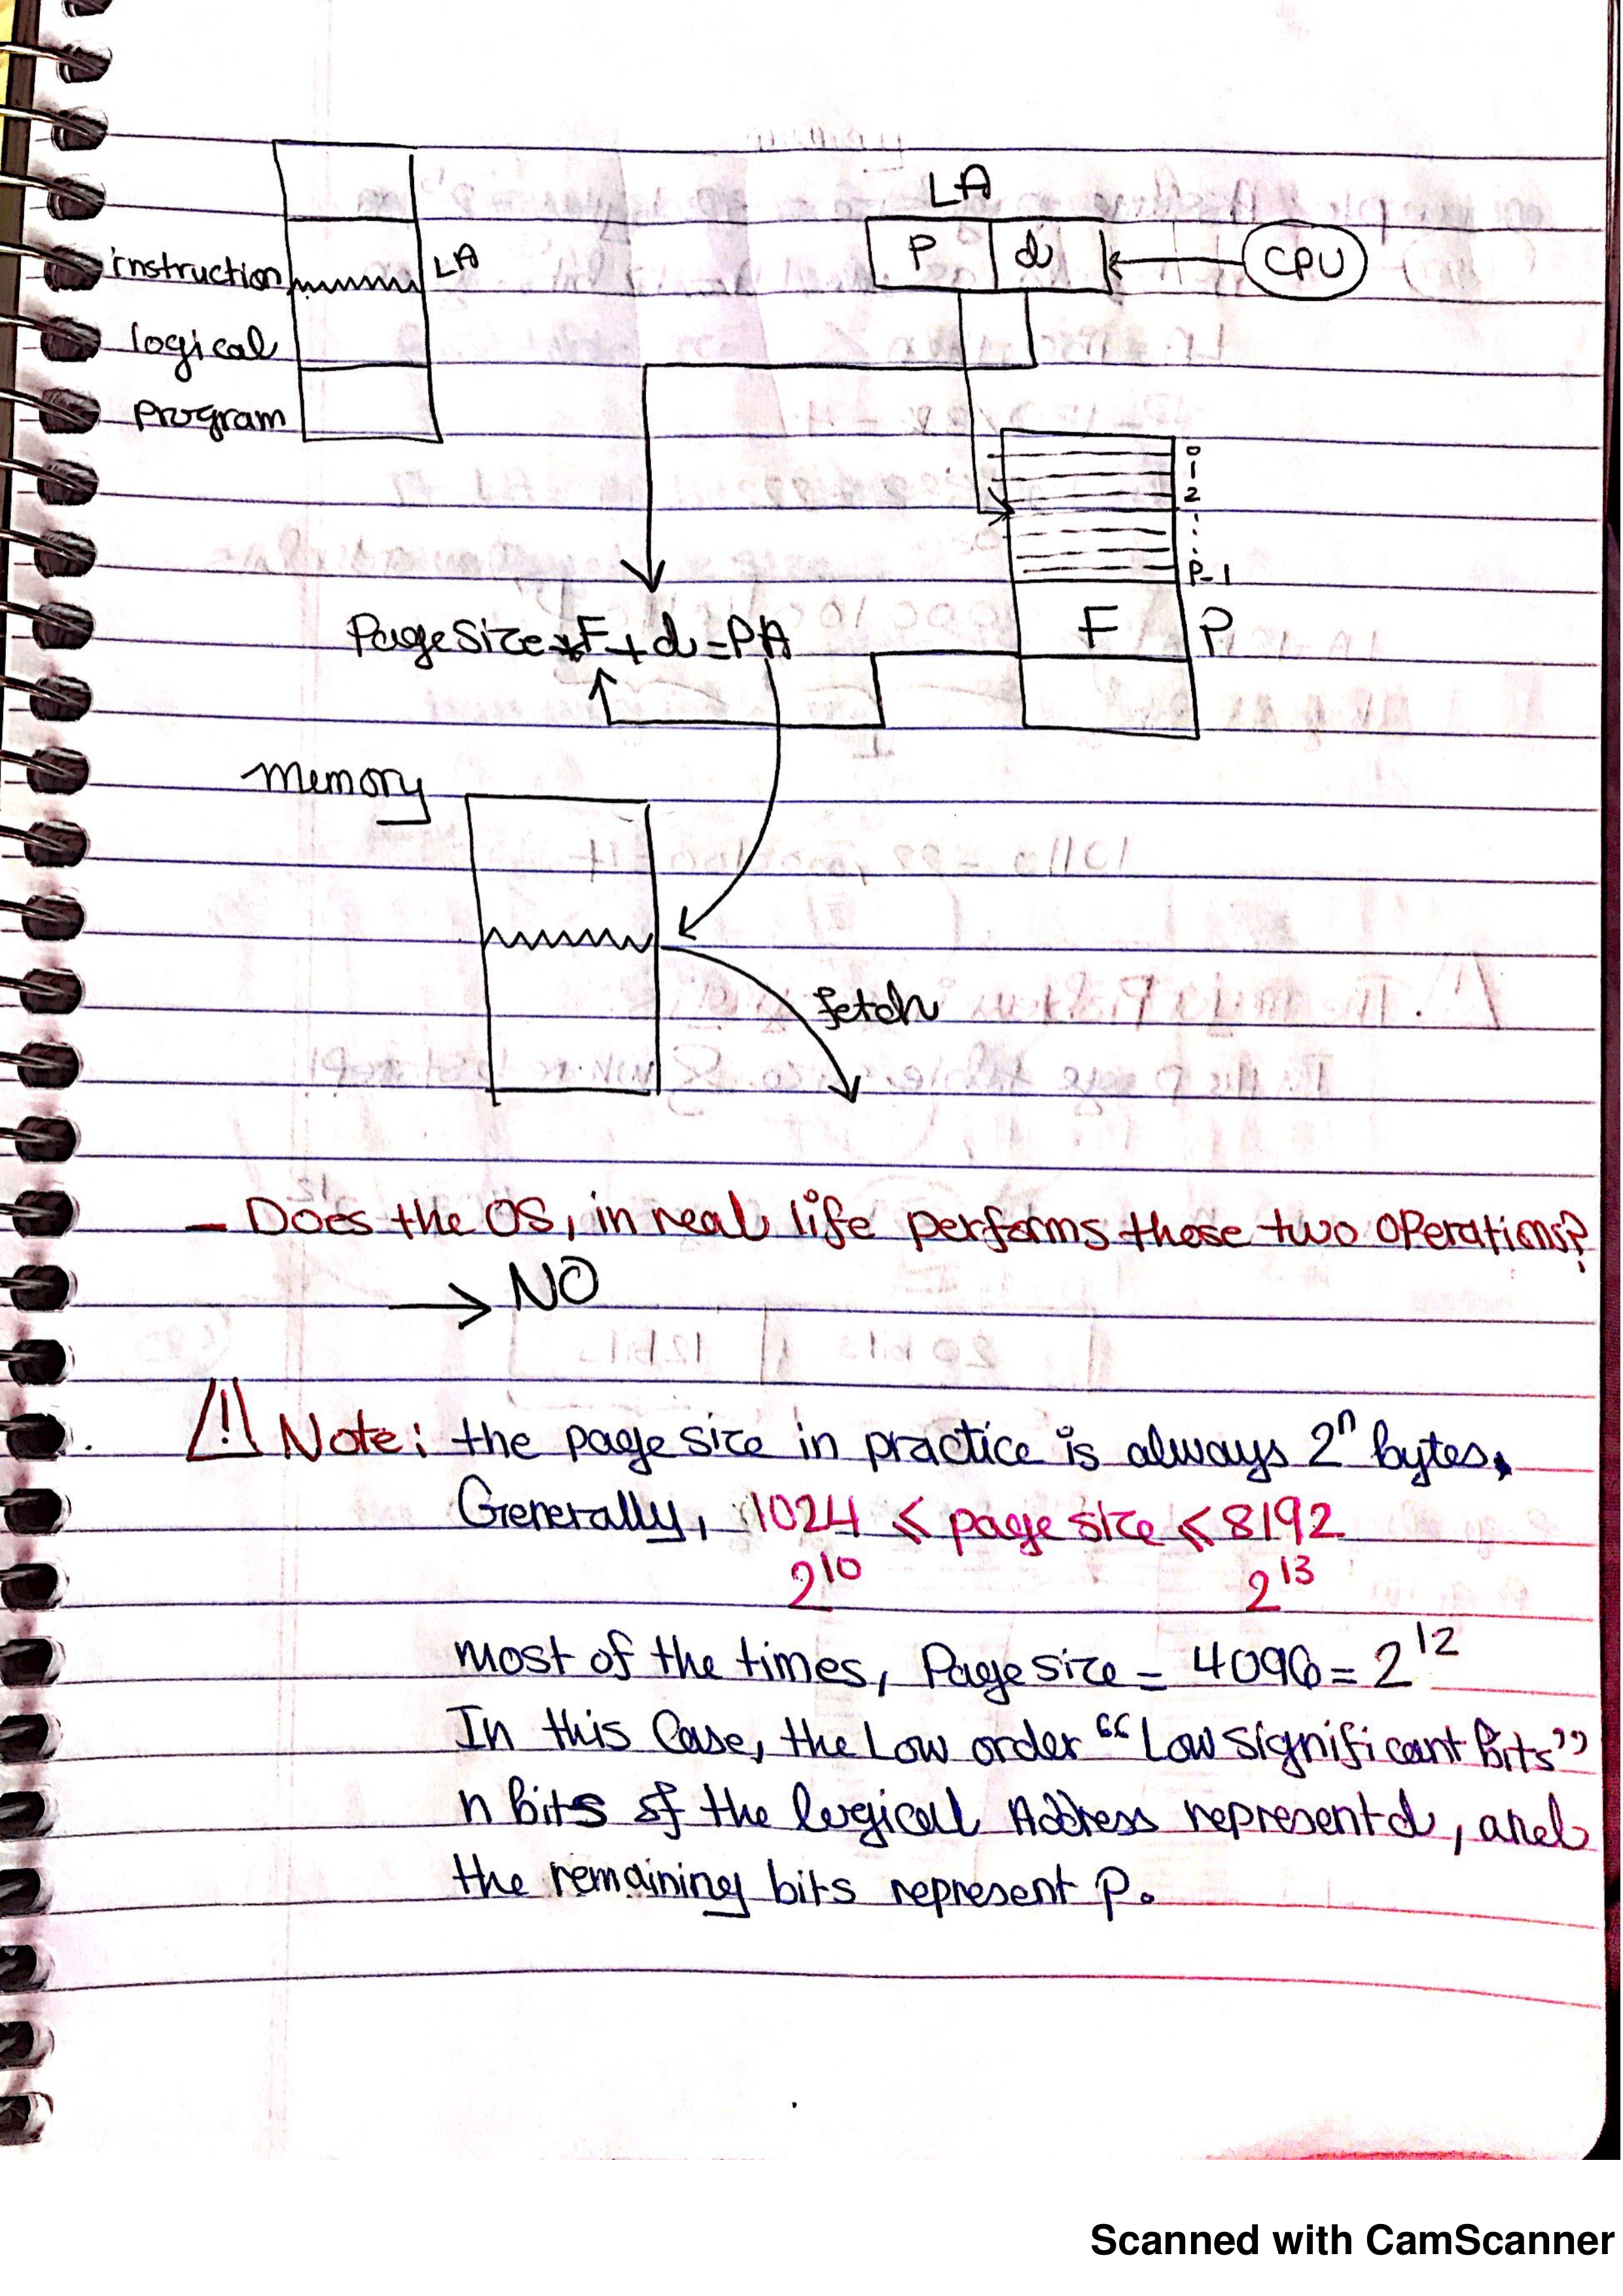 LA
P d CPU
instruction LA
logical
program
0
1
2
P-1
Page Size * F + d = PA
F P
Memory
fetch
- Does the OS, in real life performs those two operations?
→ NO
⚠ Note: the page size in practice is always 2^n bytes.
Generally, 1024 ≤ page size ≤ 8192
2^10 2^13
most of the times, Page size = 4096 = 2^12
In this Case, the Low order “Low significant Bits”
n Bits of the logical Address represent d, and
the remaining bits represent p.
Scanned with CamScanner